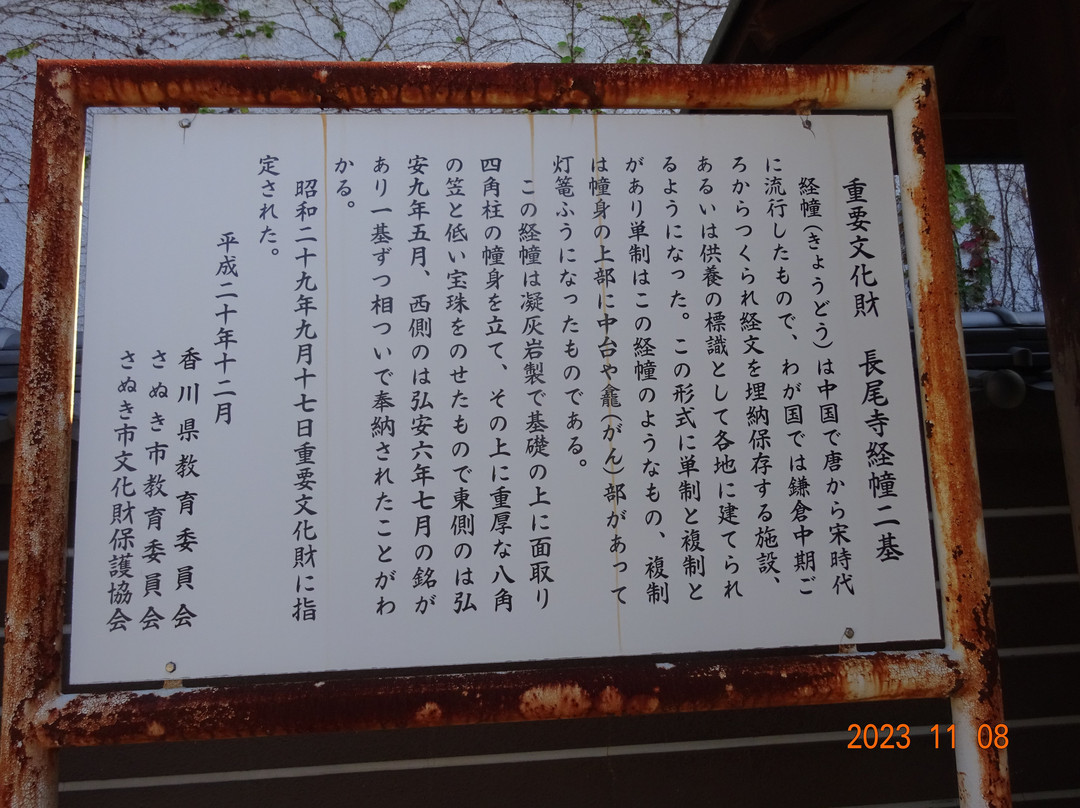 重要文化財　長尾寺経幢二基
経幢(きょうどう)は中国で唐から宋時代
に流行したもので、わが国では鎌倉中期ご
ろからつくられ経文を埋納保存する施設、
あるいは供養の標識として各地に建てられ
るようになった。この形式に単制と複制と
があり単制はこの経幢のようなもの、複制
は幢身の上部に中台や龕(がん)部があって
灯篭ふうになったものである。
この経幢は凝灰岩製で基礎の上に面取り
四角柱の幢身を立て、その上に重厚な八角
の笠と低い宝珠をのせたもので東側のは弘
安九年五月、西側のは弘安六年七月の銘が
あり一基ずつ相ついで奉納されたことがわ
かる。
昭和二十九年九月十七日重要文化財に指
定された。
平成二十年十二月
香川県教育委員会
さぬき市教育委員会
さぬき市文化財保護協会
2023 11 08